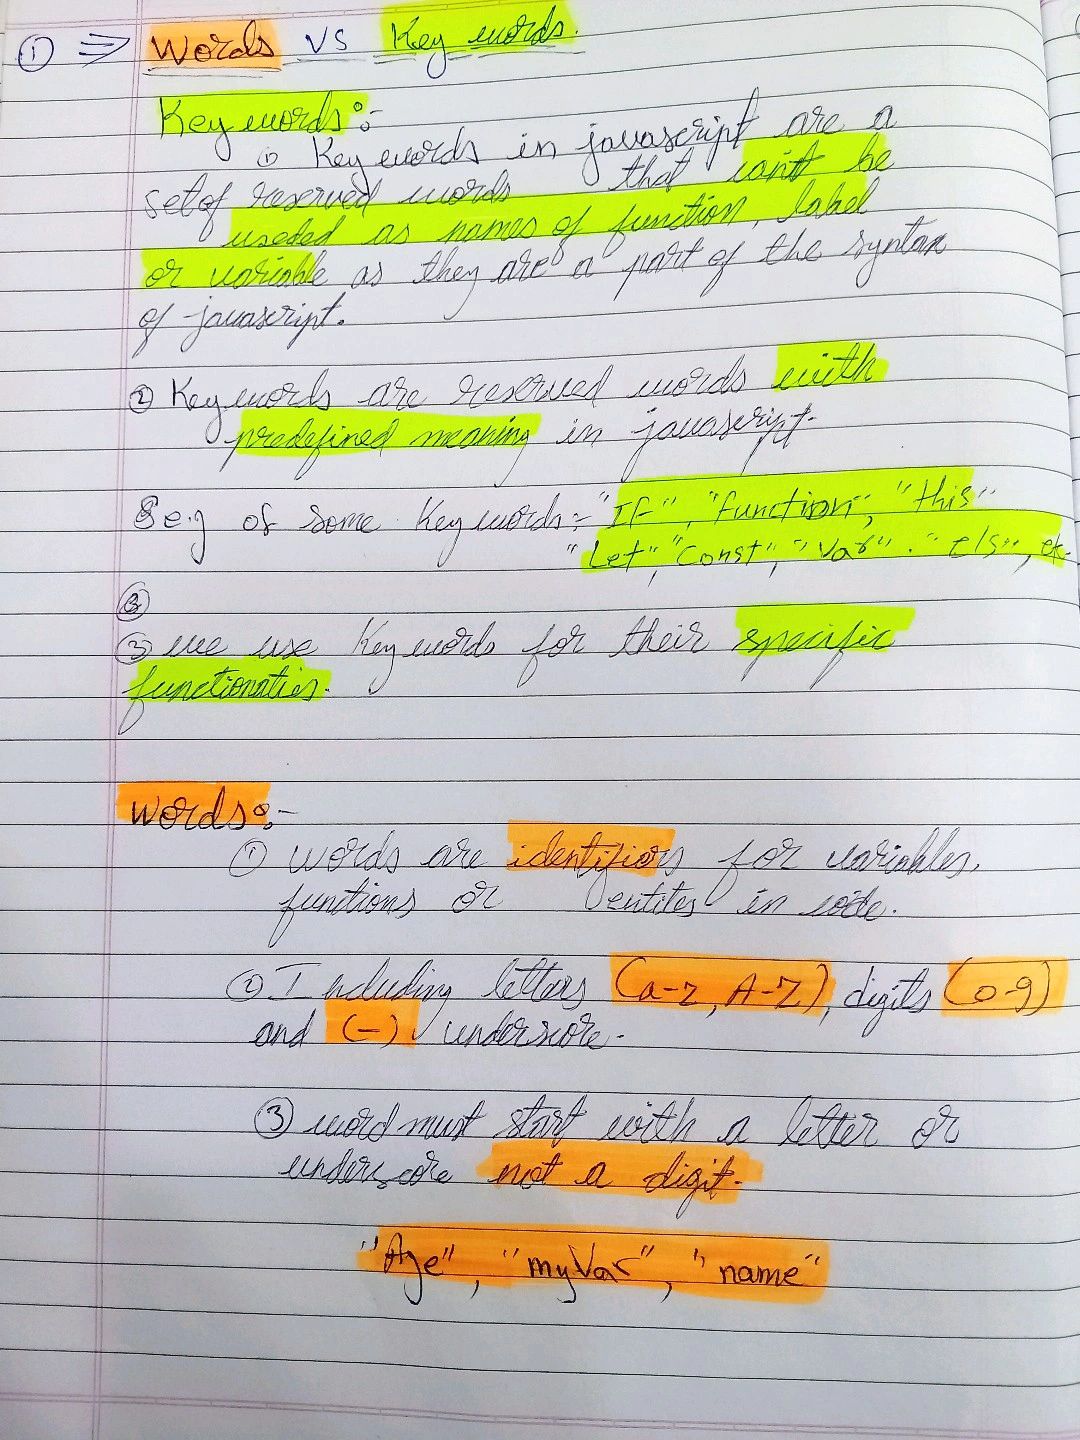 ① ⇒ Words vs Key words.
Key words:-
① Key words in javascript are a
set of reserved words that can't be
useded as names of function, label
or variable as they are a part of the syntax
of javascript.
② Key words are reserved words with
predefined meaning in javascript.
e.g of some Key words:- "If", "function", "this"
"Let", "Const", "Var". "els", etc
③
③ we use Key words for their specific
functionaties.
Words:-
① words are identifiers for variables,
functions or entites in code.
② Including letters (a-z, A-Z), digits (0-9)
and (-) underscore.
③ word must start with a letter or
underscore not a digit.
"Age", "myVar", "name"